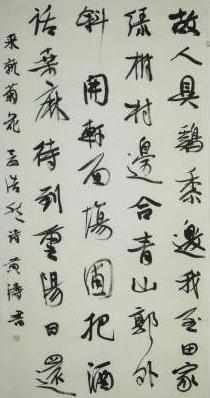 故人具鷄黍邀我至田家
綠樹村邊合青山郭外
斜開軒面場圃把酒
話桑麻待到重陽日還
來就菊花孟浩然詩